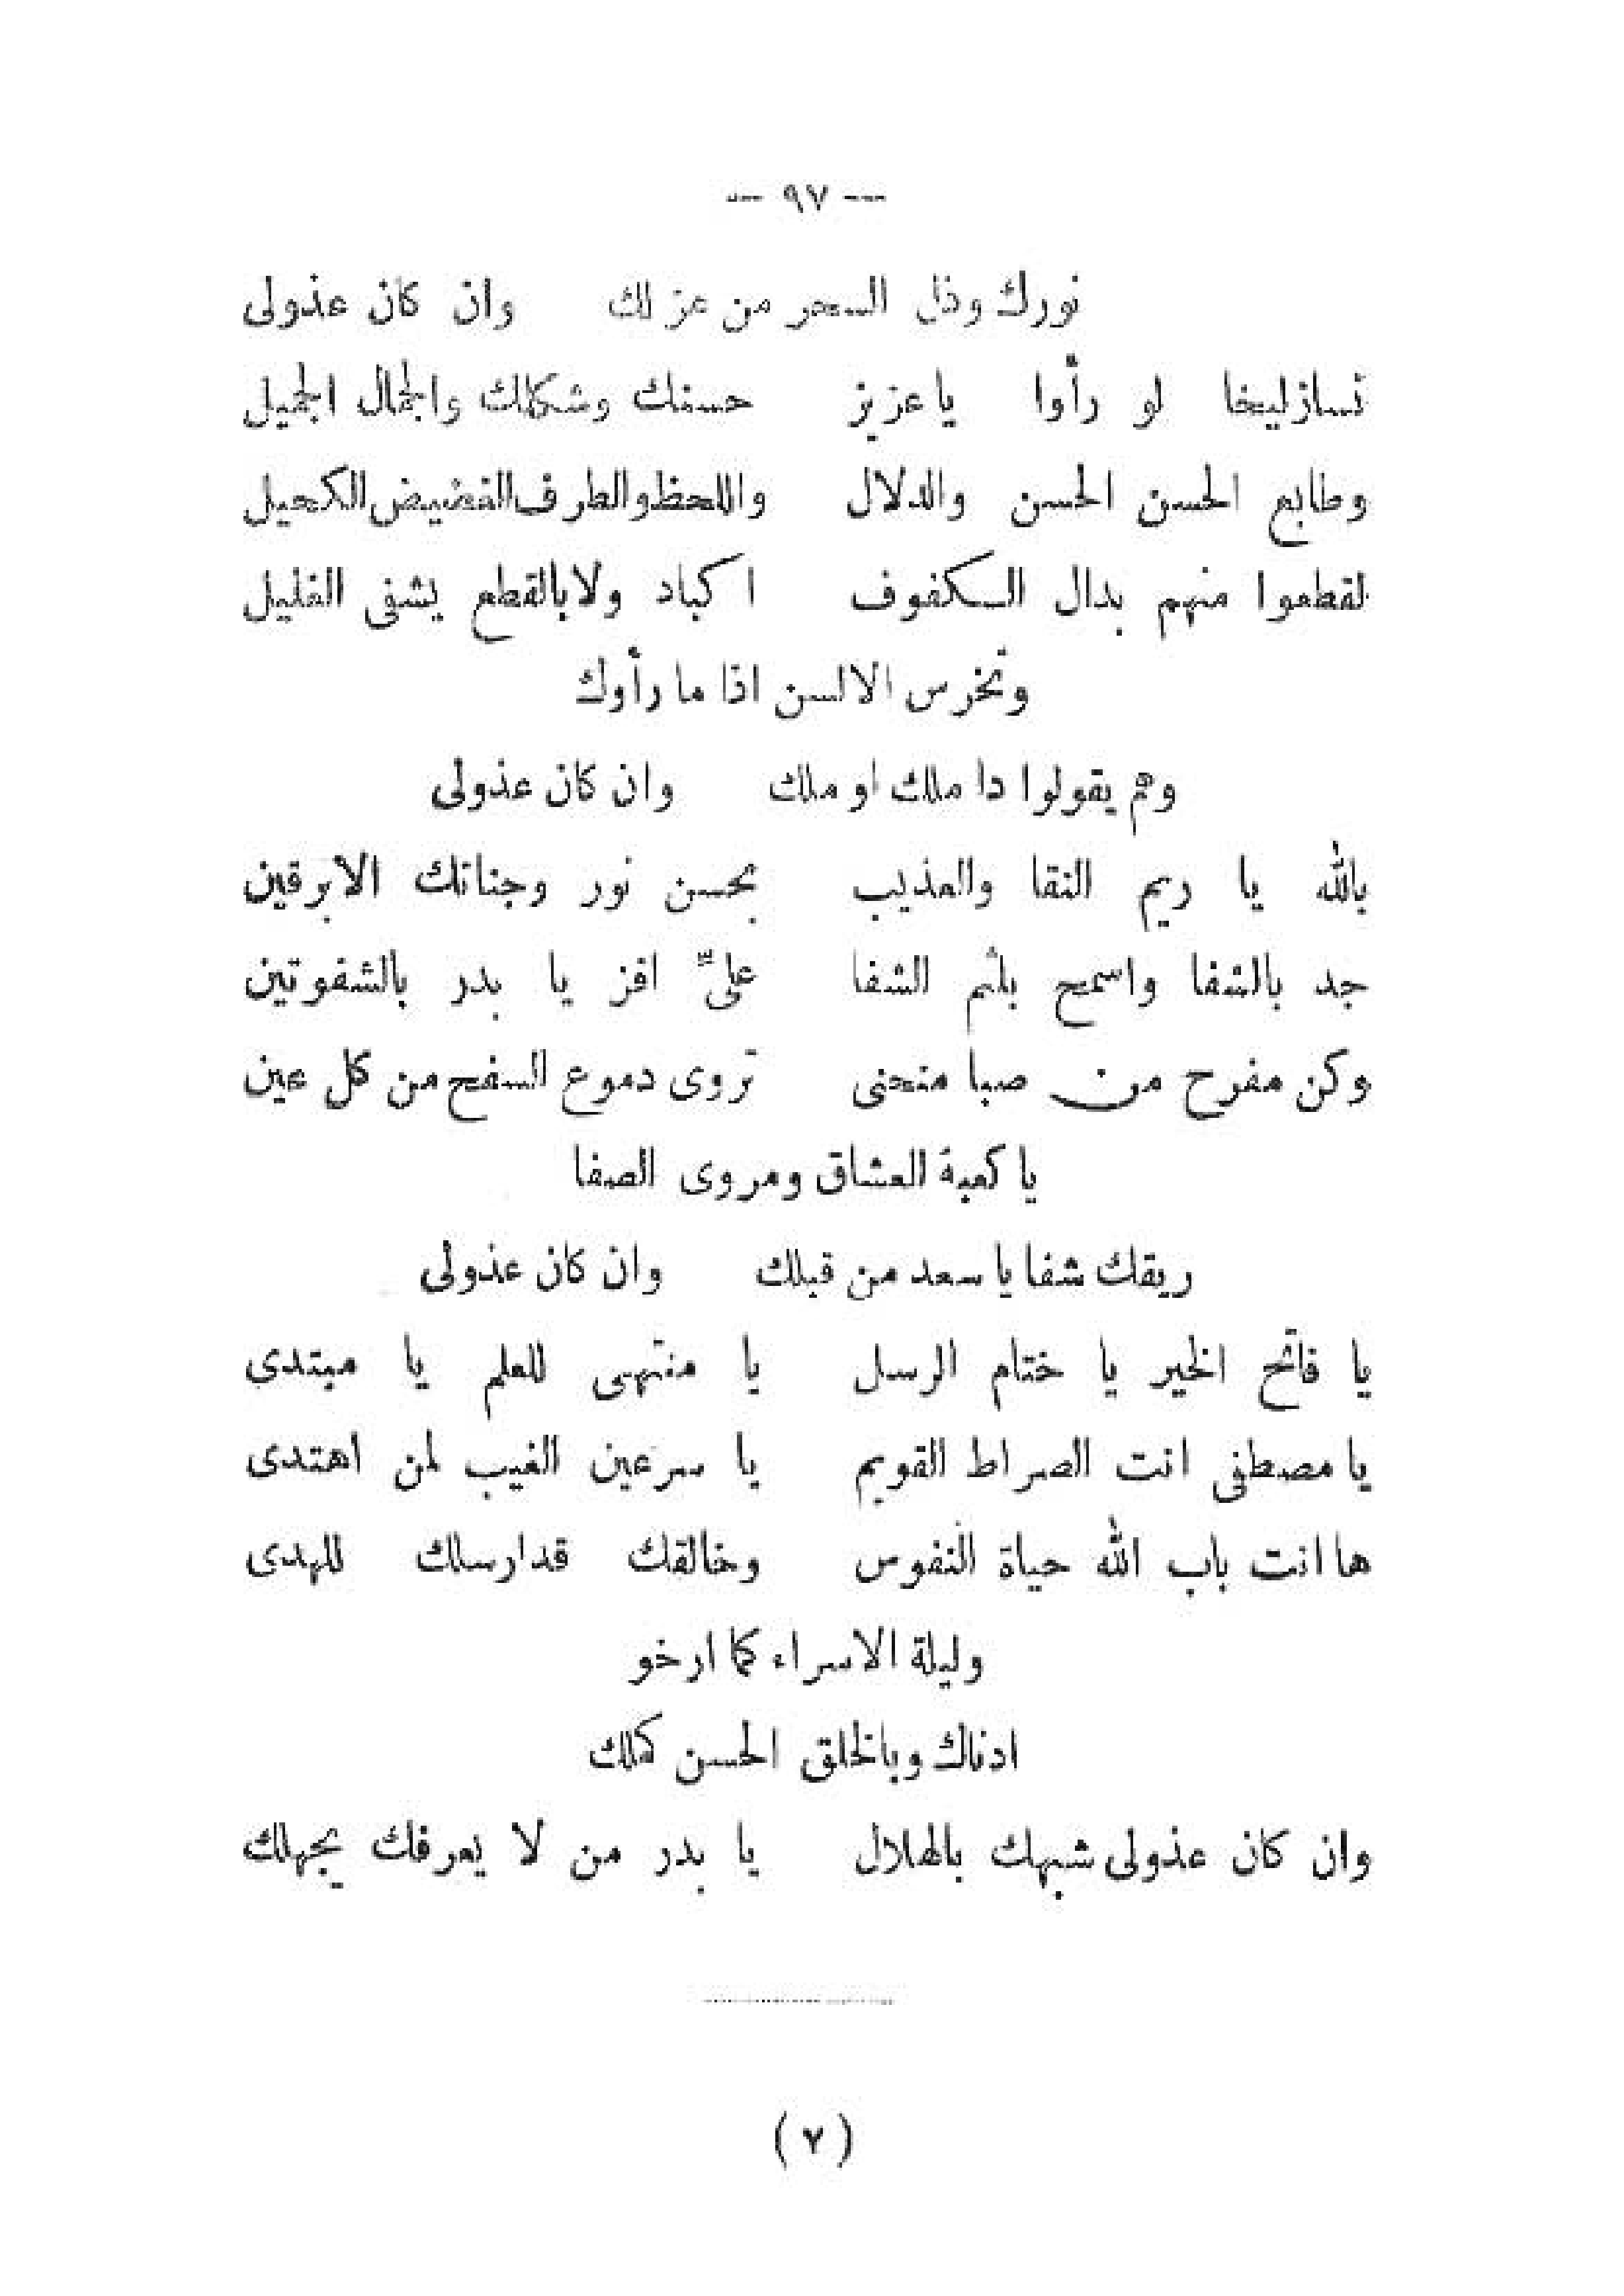 — ٩٧ —
نورك وذل السحر من عز لك وان كان عذولى
نساز ليخا لو رأوا يا عزيز حسنك وشكلك والجمال الجميل
وطابع الحسن الحسن والدلال واللحظ والطرف الغضيض الكحيل
لقطعوا منهم بدال الكفوف اكباد ولا بالقطع يشفى الغليل
وتخرس الالسن اذا ما رأوك
وهم يقولوا دا ملك او ملك وان كان عذولى
بالله يا ريم النقا والعذيب بحسن نور وجناتك الابرقين
جد بالشفا واسمح بلثم الشفا علىّ افز يا بدر بالشفوتين
وكن مفرح من صبا منحنى تروى دموع السفح من كل عين
يا كعبة العشاق ومروى الصفا
ريقك شفا يا سعد من قبلك وان كان عذولى
يا فاتح الخير يا ختام الرسل يا منتهى للعلم يا مبتدى
يا مصطفى انت الصراط القويم يا سر عين الغيب لمن اهتدى
ها انت باب الله حياة النفوس وخالقك قد ارسلك للهدى
وليلة الاسراء كما ارخو
ادناك وبالخلق الحسن كملك
وان كان عذولى شبهك بالهلال يا بدر من لا يعرفك يجهلك
(٧)